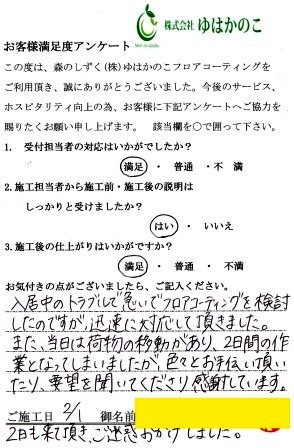 株式会社 ゆはかのこ
お客様満足度アンケート
この度は、森のしずく(株)ゆはかのこフロアコーティングを
ご利用頂き、誠にありがとうございました。今後のサービス、
ホスピタリティ向上の為、お客様に下記アンケートへご協力を
賜りたくお願い申し上げます。 該当欄を〇で囲って下さい。
1. 受付担当者の対応はいかがでしたか?
満足 ・ 普通 ・不 満
2.施工担当者から施工前・施工後の説明は
しっかりと受けましたか?
はい ・ いいえ
3.施工後の仕上がりはいかがですか?
満足 ・ 普通 ・ 不満
お気付きの点がございましたら、ご記入ください。
入居中のトラブルで急いでフロアコーティングを検討
したのですが、迅速に対応して頂きました。
また、当日は荷物の移動があり、2日間の作
業となってしまいましたが、色々とお手伝い頂い
たり、要望を聞いてくださり感謝しています。
ご施工日 2/1 御名前
2日も来て頂き、ご迷惑おかけしました。